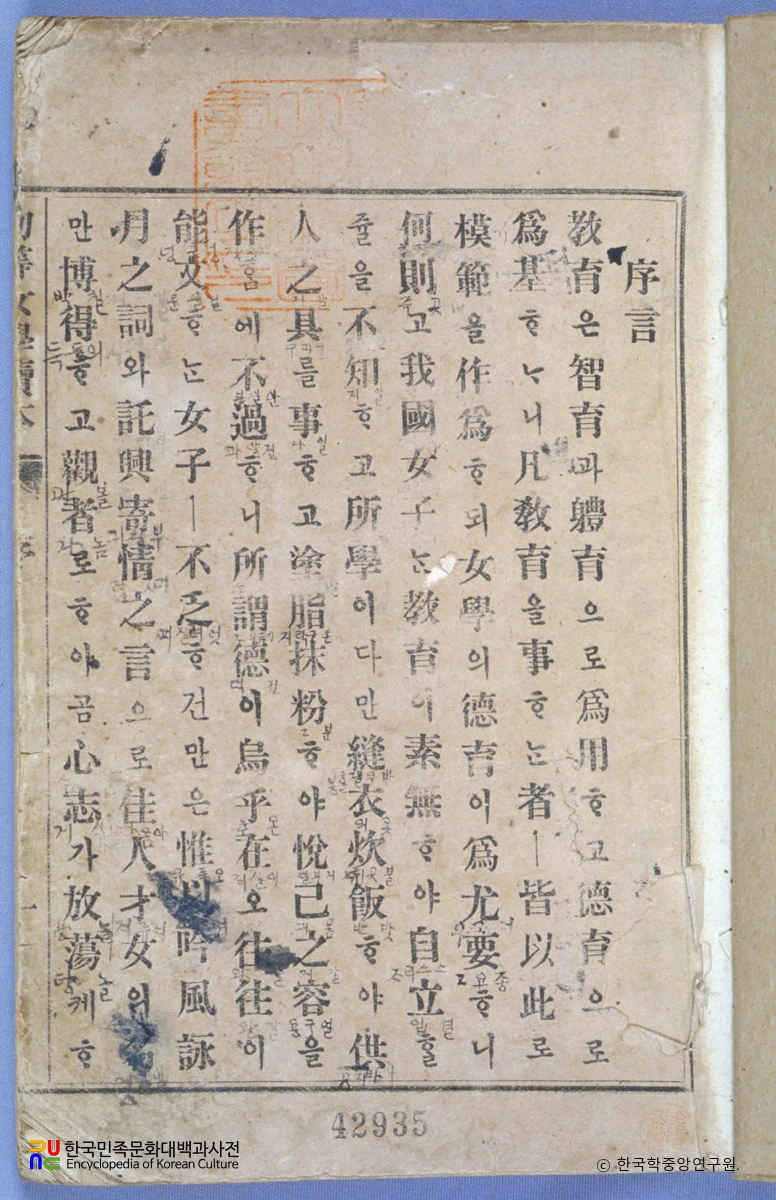 序言
教育은智育과體育으로爲用ᄒᆞ고德育으로
爲基ᄒᆞᄂᆞ니凡敎育을事ᄒᆞᄂᆞᆫ者ㅣ皆以此로
模範을作爲ᄒᆞ되女學의德育이爲尤要ᄒᆞ니
何則고我國女子ᄂᆞᆫ敎育이素無ᄒᆞ야自立ᄒᆞᆯ
쥴을不知ᄒᆞ고所學이다만縫衣炊飯ᄒᆞ야供
人之具를事ᄒᆞ고塗脂抹粉ᄒᆞ야悅己之容을
作홈에不過ᄒᆞ니所謂德이烏乎在오往往이
能文ᄒᆞᄂᆞᆫ女子ㅣ不乏ᄒᆞ건만은惟以吟風詠
月之詞와託興寄情之言으로佳人才女의名
만博得ᄒᆞ고觀者로ᄒᆞ야곰心志가放蕩케ᄒᆞ
初等女學讀本
42935
한국민족문화대백과사전
Encyclopedia of Korean Culture
ⓒ 한국학중앙연구원.